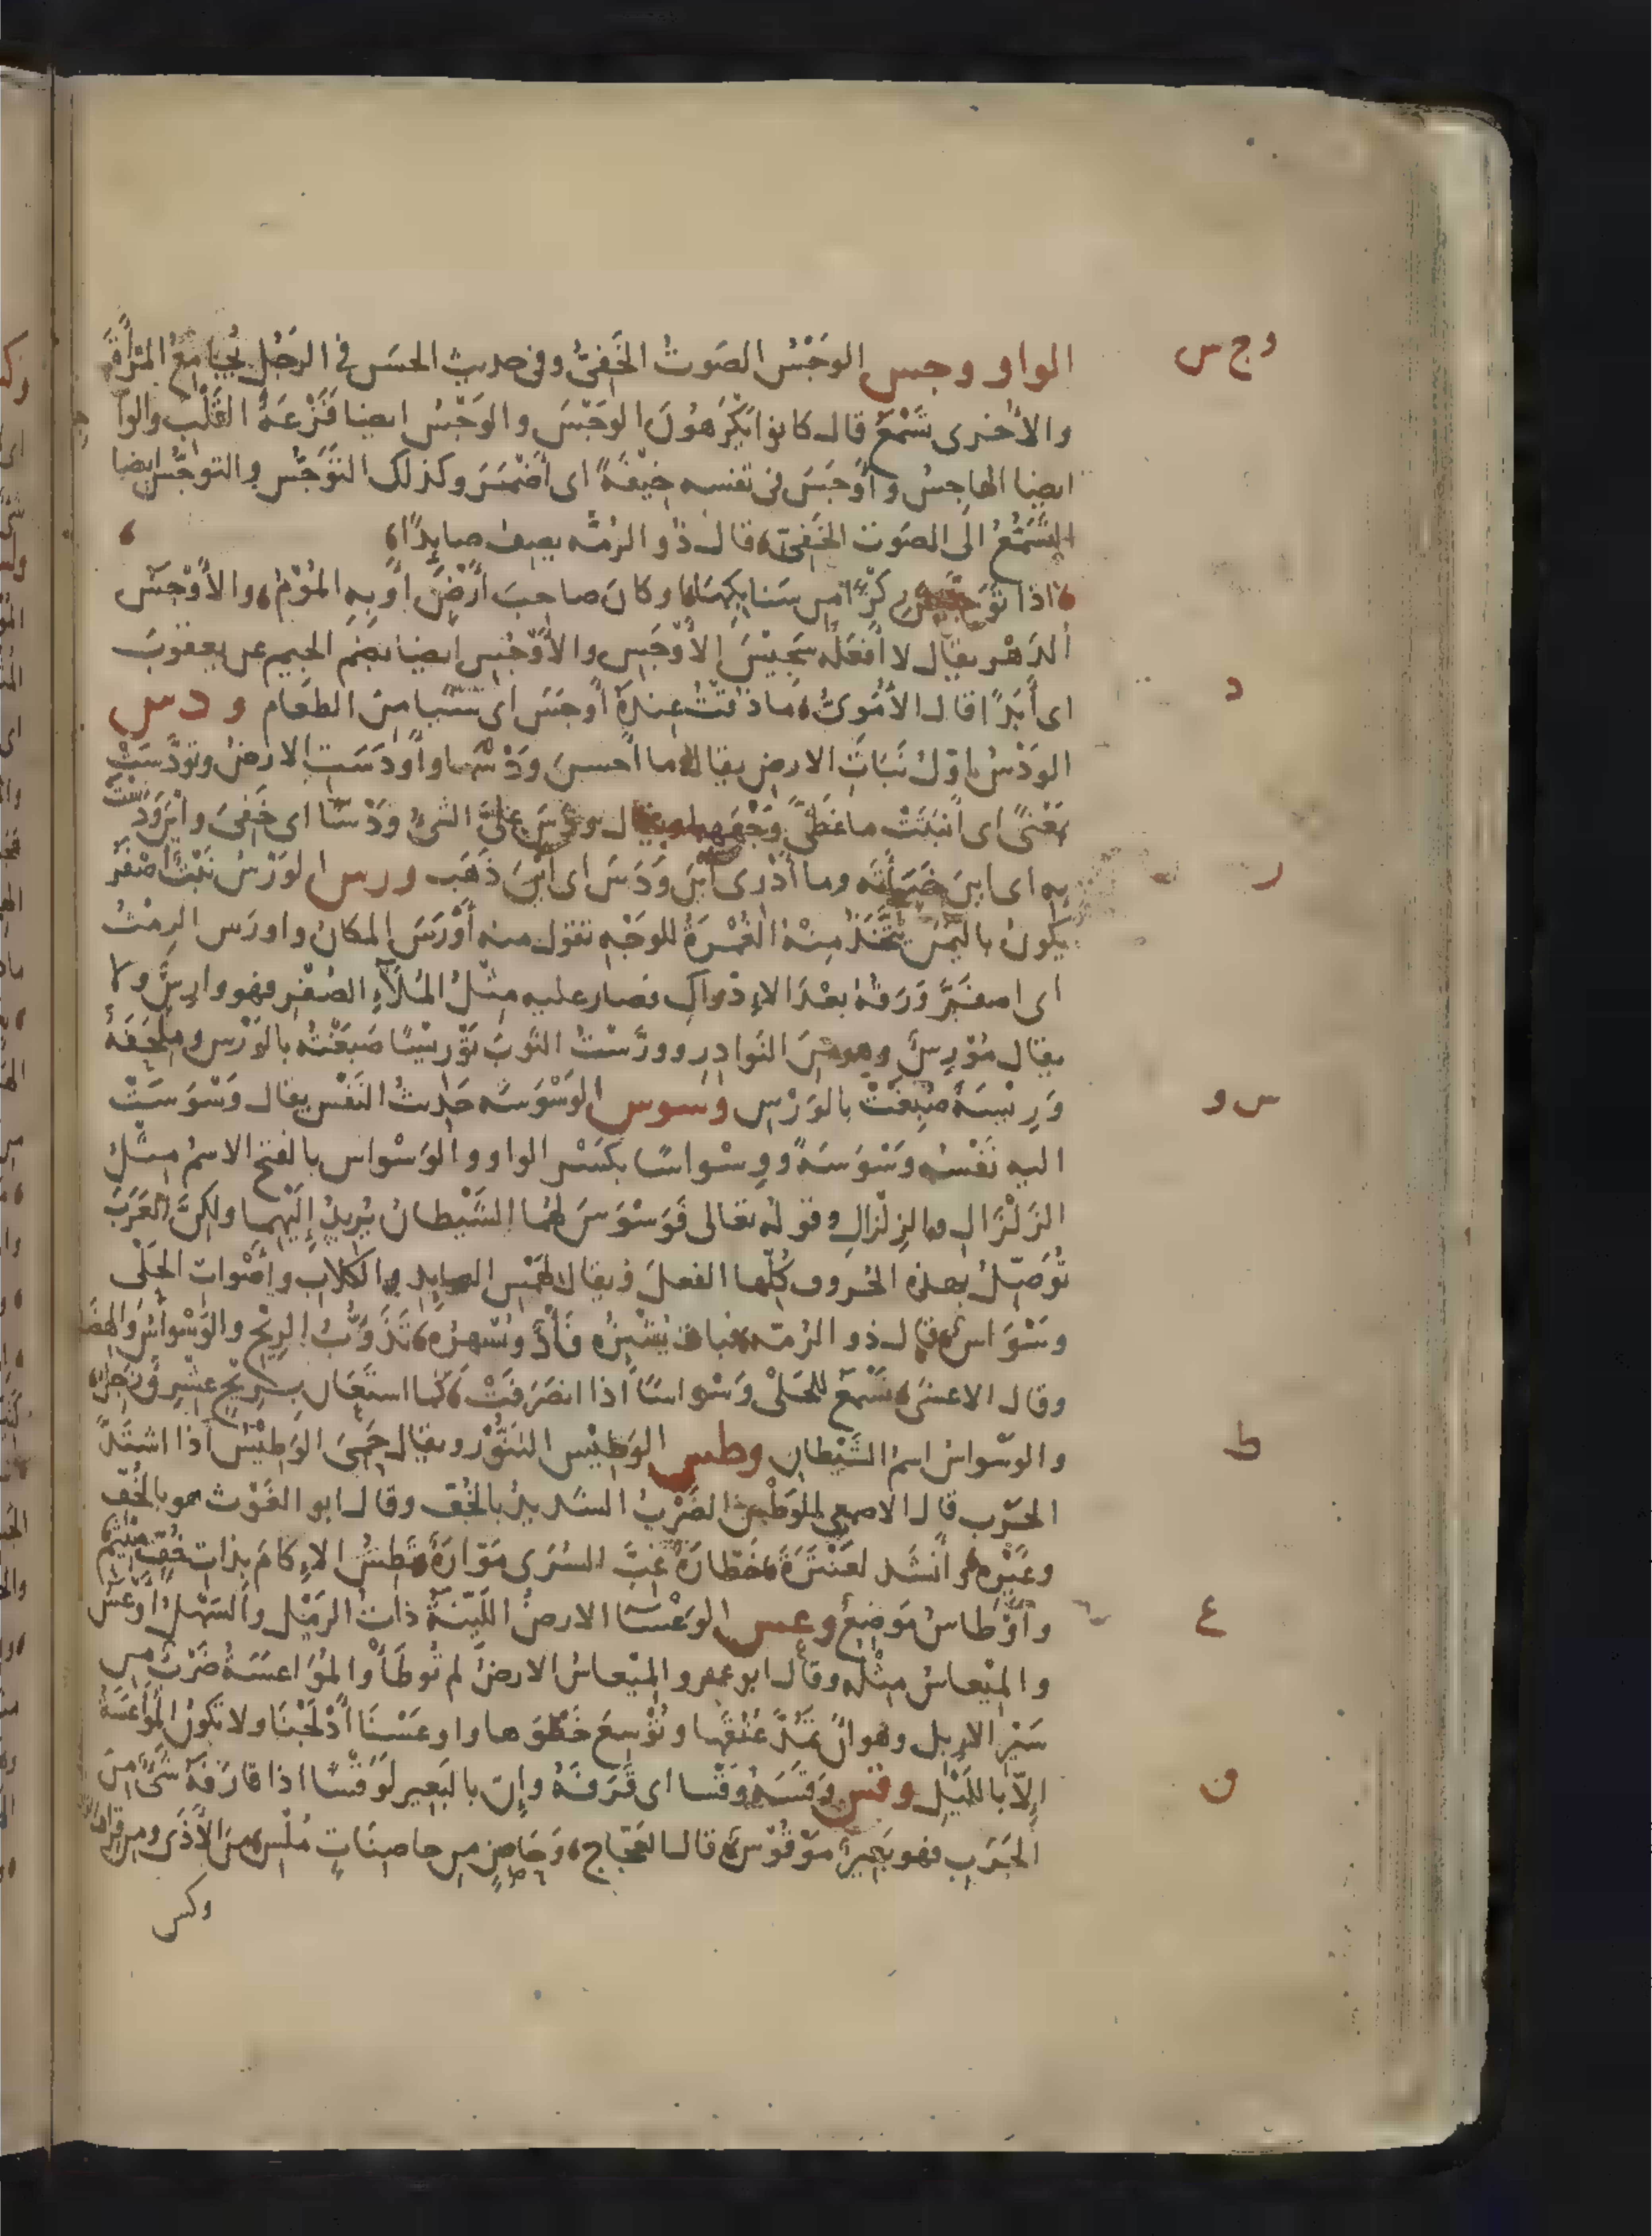 وج س
الواو وجس الوَجْسُ الصَوتُ الخَفِىُّ وفى حديث الحسَن فى الرجُل يُجَامِعُ المَرْأَةَ
والأُخرى تَسْمَعُ قال كانوا يَكْرَهُونَ الوَجْسَ والوَجْسُ ايضا فَزْعَةُ القَلْبِ والوا
ايضا الهاجِسُ وأَوْجَسَ فى نفسه خِيْفَةً اى أَضْمَرَ وكذلك التَوَجُّس والتوَجُّس ايضا
التَسَمُّعُ الى الصَوت الخَفِىّ قال ذو الرُمّه يصِف صايِدًا
اذا تَوَجَّسَ رِكْزًا من سَنابِكِها وكان صاحِبَ أَرْضٍ أَو بِهِ المُوْمُ والأَوْجَسُ
الدَهْر يقال لا أَفْعَلُه سَجِيْسَ الأَوْجَسِ والأَوْجُسِ ايضا بضم الجيم عن يعقوبَ
د
اى أَبَدًا قال الأُمَوِىُّ ما ذُقْتُ عِندَهُ أَوْجَسَ اى شيئا من الطعَام ودس
الوَدْسُ اوّلُ نَبَاتِ الارض يقال ما أحسنَ وَدْسَها وأَوْدَسَتِ الارضُ وتَوَدَّسَتْ
بمَعْنىً اى أَنبَتَتْ ما غَطَّى وَجْهَها ويقال وَدَسَ عَلَىَّ الشىُ وَدْسًا اى خَفِىَ وأَيْنَ وَدَسْتَ
ر
بِهِ اى اينَ خَبَأْتَه وما أَدْرِى أَيْنَ وَدَسَ اى ايْنَ ذَهَب ورس الوَرْسُ نَبْتٌ أَصْفَرُ
يكونُ باليَمَن يُتَّخَذُ مِنْهُ الغُمْرَةُ للوَجْهِ تقول منه أَوْرَسَ المكانُ واورَس الرِمْثُ
اى اصفَرَّ وَرَقُهُ بعْدَ الإِدْراكِ فصار عليه مِثْلُ المُلَآءِ الصُفْرِ فهو وارِسٌ ولا
يقال مُوْرِسٌ وهو منَ النَوادِرِ ووَرَّسْتُ الثَوبَ تَوْرِيْسًا صَبَغْتُهُ بالوَرْسِ ومِلْحَفَةٌ
س و
وَرِيْسَةٌ صُبِغَتْ بالوَرْسِ وسوس الوَسْوَسَه حَدِيثُ النَفْس يقال وَسْوَسَتْ
اليه نَفْسُه وَسْوَسَةً ووِسْواسًا بكَسْرِ الواو والوَسْواس بالفَتح الاسمُ مِثْلُ
الزَلْزَال والزِلْزالِ وقولُه تعالى فَوَسْوَسَ لَهُما الشَيْطانُ يُرِيدُ إِلَيْهِما ولكِنَّ العَرَبَ
تُوصِلُ بهذه الحُروف كُلِّها الفعلَ ويقال لهَمْسِ الصايِدِ والكِلابِ وأَصْواتِ الحَلْى
وَسْوَاسٌ قال ذو الرُمّه فَبات يُشْئِزُه ثَأْدٌ ويُسْهِرُه تَذَؤُّبُ الرِيْحِ والوَسْواسُ والهِضَبُ
وقال الاعشَى تَسْمَعُ للحَلْى وَسْواسًا اذا انصَرَفَتْ كما استَعَان بِرِيْحٍ عِشْرِقٌ زَجِلُ
ط
والوَسْواسُ اسمُ الشَيْطانِ وطس الوَطِيْس التَنُّوْر ويقال حَمِىَ الوَطِيْسُ اذا اشتَدَّ
الحَرْب قال الاصمعى الوَطْسُ الضَرْبُ الشديدُ بالخُفّ وقال ابو الغَوْث هو بالخُفّ
وغَيْرِه وأَنشَد لعَنْتَرَةَ خَطّارَةٌ غِبَّ السُرَى مَوّارَةٌ تَطِسُ الإِكامَ بذاتِ خُفٍّ مِيْثَمِ
ع
وأَوْطاسُ مَوْضِعٌ وعس الوَعْسَاء الارضُ اللَيِّنَةُ ذاتُ الرَمْل والسَهْلُ أَوْعَسُ
والمِيْعاسُ مِثْلُه وقال ابو عمرو المِيْعاسُ الارضُ لم تُوطَأْ والمُوَاعَسَةُ ضَرْبٌ من
سَيْرِ الإِبِل وهو أَنْ تَمُدَّ عُنُقَها وتُوْسِعَ خَطْوَها واوعَسْنَا أَدْلَجْنَا ولا تكونُ المُوَاعَسَةُ
ق
إِلّا باللَيْلِ وقس وَقَسَهُ وَقْسا اى قَرَفَهُ وإنّ بالبَعِير لَوَقْسًا اذا قارَفَهُ شَىٌ منَ
الجَرَب فهو بَعِيرٌ مَوْقُوْسٌ قال العَجّاج وحَاصِنٍ من حاصِنَاتٍ مُلْسِ منَ الأَذَى ومن قِرافِ
وكس